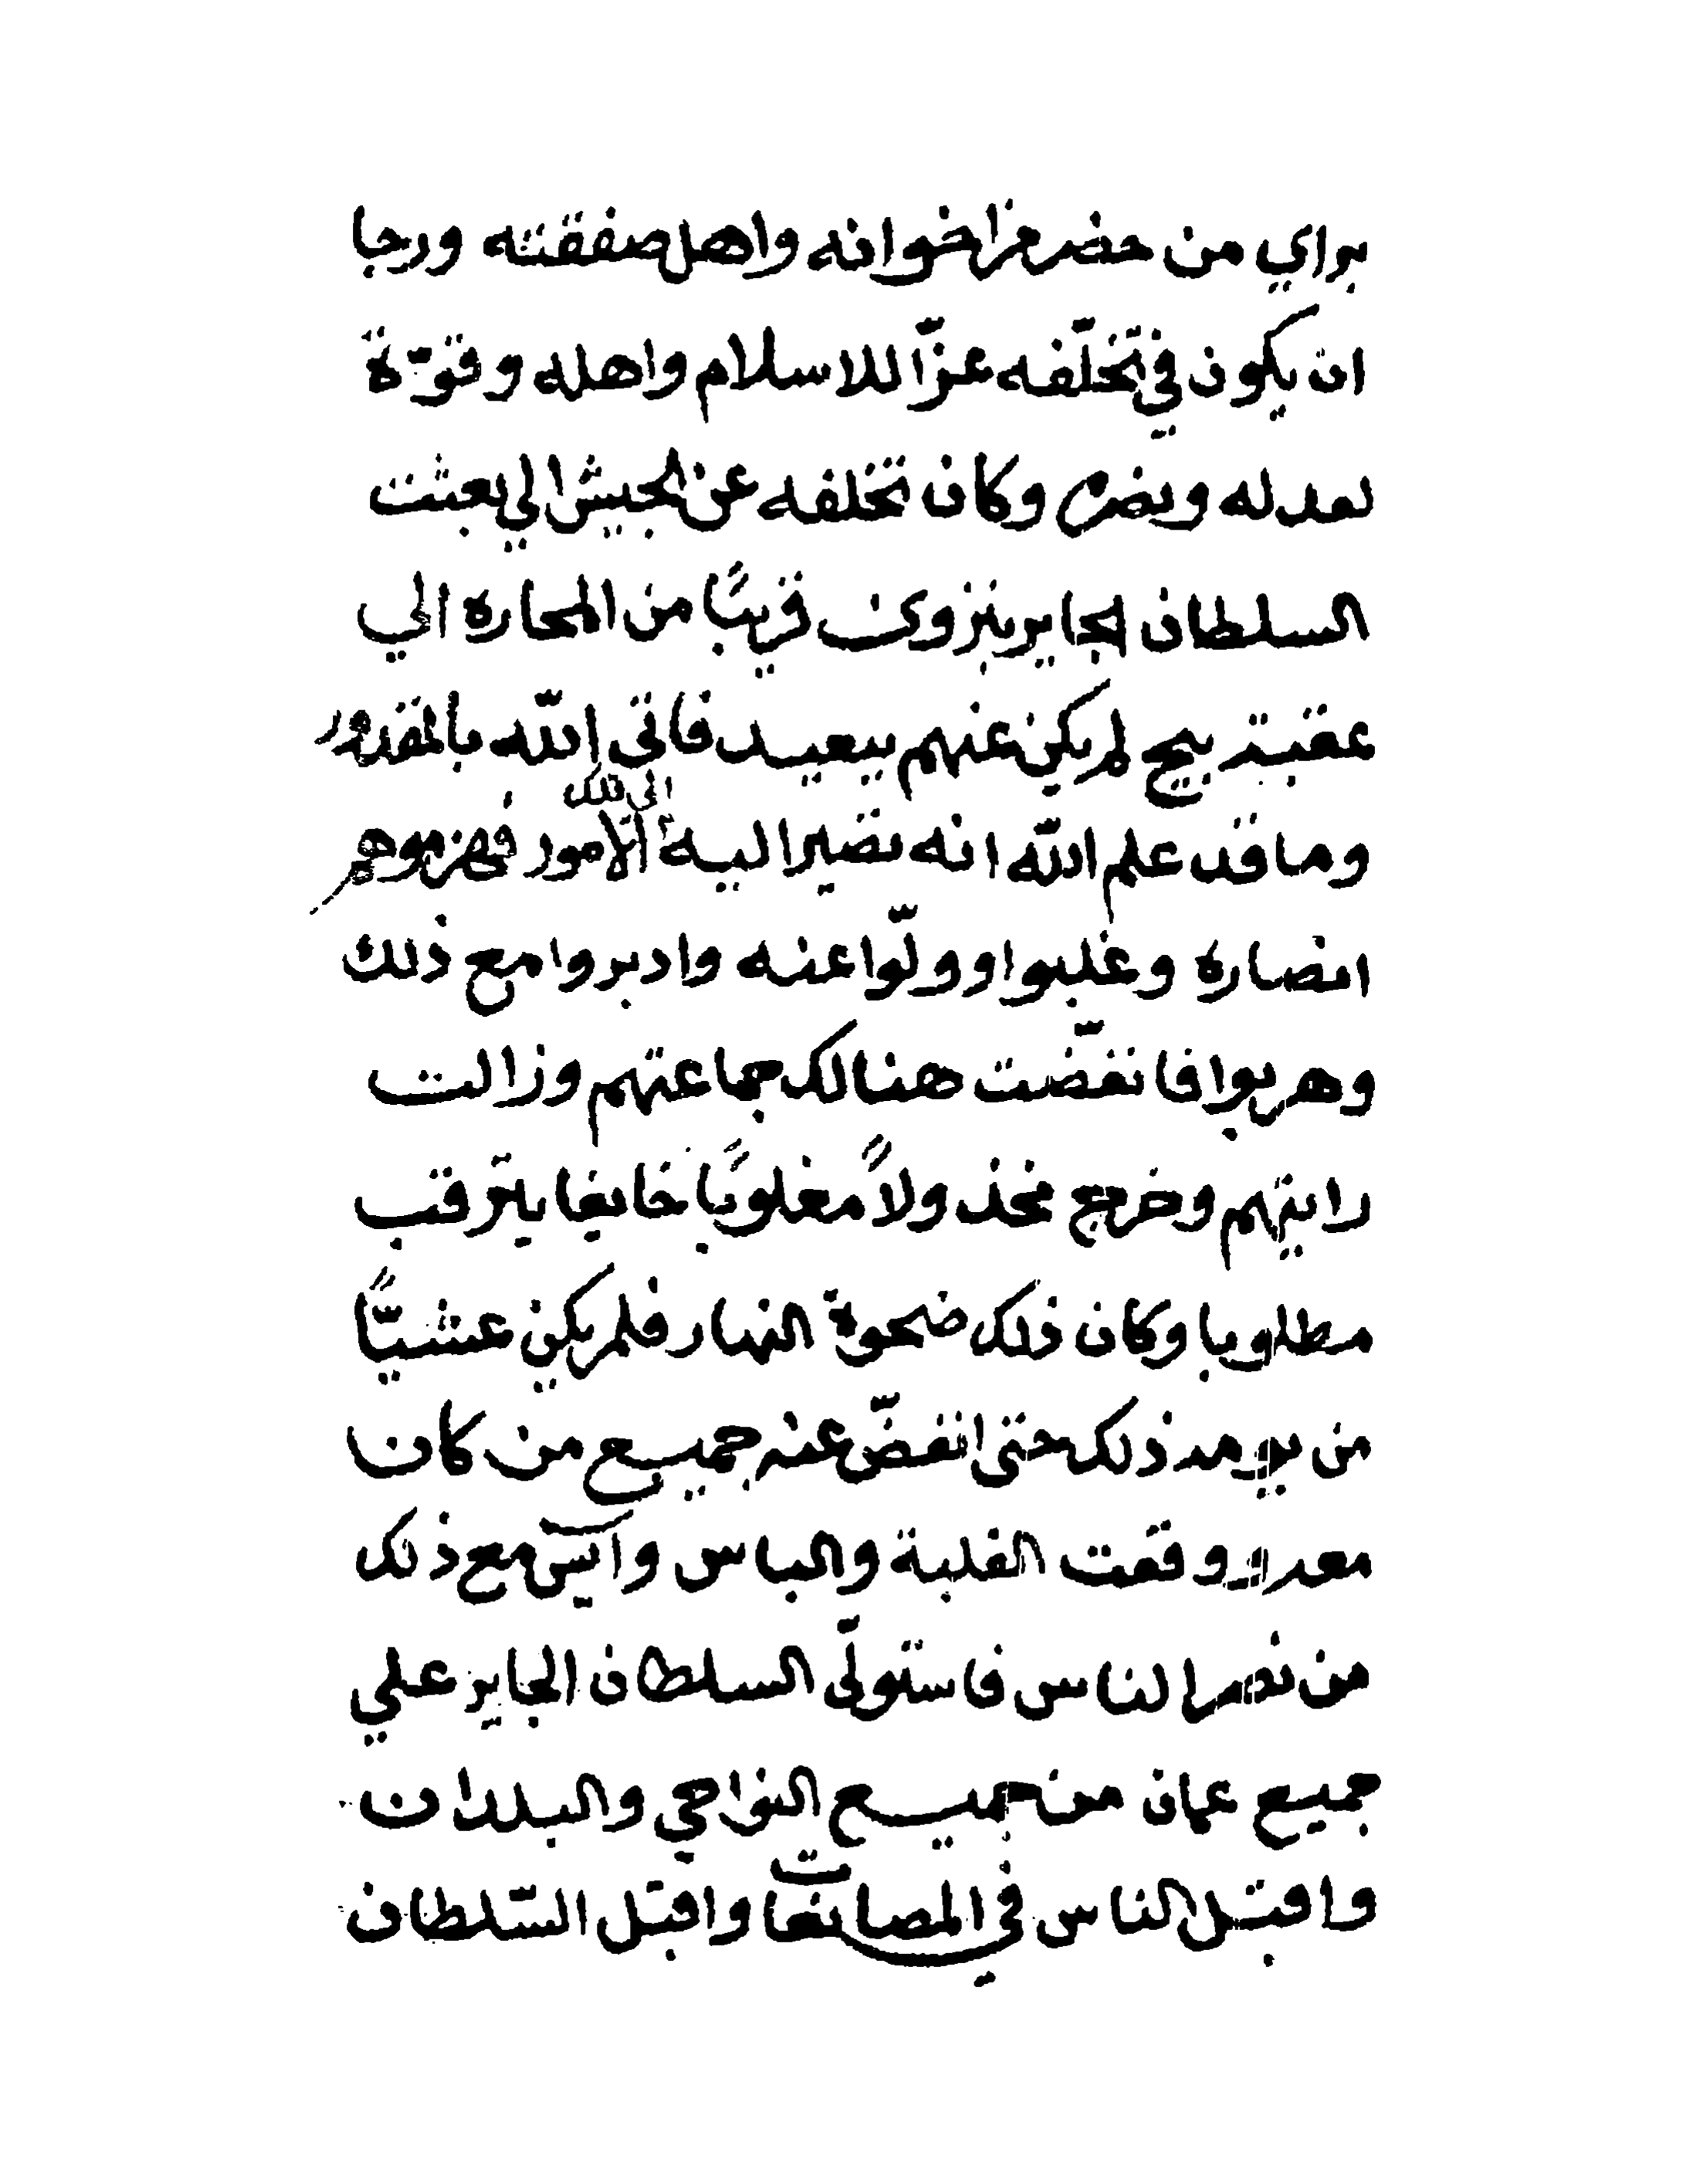 براي من حضر من اخوانه واهل صفقته ورجا
ان يكون في تخلّفه عزّا للاسلام واهله وقوّة
لعدله ونصره وكان تخلفه عن الجيش الي بعثت
السلطان الجاير بنزوى قريبًا من المحاره الي
عقبة بيح لم يكن عنهم ببعيد فاتى الله بالمقدور
وما قد علم الله انه تصير اليه الامور فهزموهم
الى الله
انصاره وغلبوا وولّوا عنه وادبروا مع ذلك
وهربوا فانفضّت هنالك جماعتهم وزالت
رايتهم وخرج مخذولاً مغلوبًا خايفا يترقب
مطلوبا وكان ذلك ضحوة النهار فلم يكن عشيّا
من يومه ذلك حتى انفضّ عنه جميع من كان
معه ووقعت الغلبة والباس وآيس مع ذلك
من نصر الناس فاستولّى السلطان الجاير على
جميع عمان من جميع النواحي والبلدان
واقبل الناس في المصانعات واقبل السّلطان